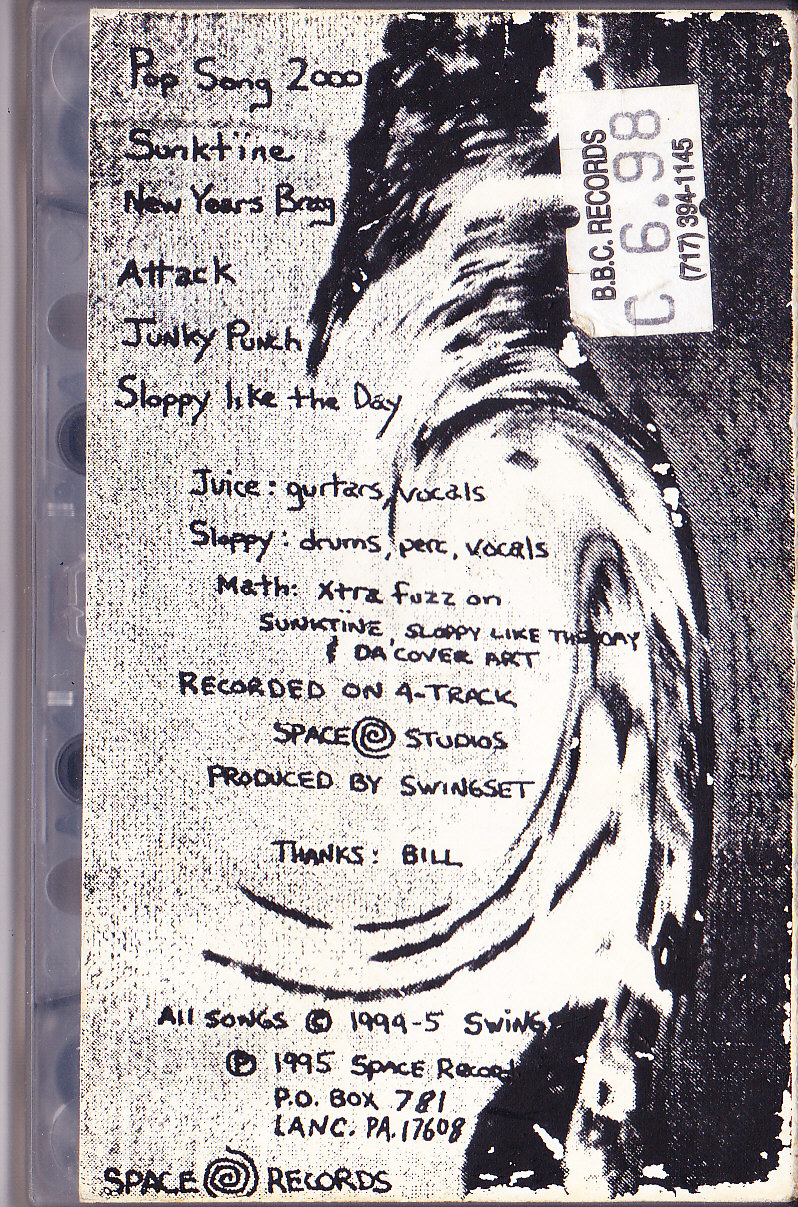 Pop Song 2000
Sunktïne
New Years Brag
Attack
Junky Punch
Sloppy like the Day
Juice: guitars, vocals
Sloppy: drums, perc, vocals
Math: Xtra fuzz on
SUNKTÏNE, SLOPPY LIKE THE DAY
& DA COVER ART
RECORDED ON 4-TRACK
SPACE STUDIOS
PRODUCED BY SWINGSET
THANKS: BILL
All SONGS © 1994-5 SWINGS
℗ 1995 SPACE RECORD
P.O. BOX 781
LANC. PA. 17608
SPACE RECORDS
B.B.C. RECORDS
C 6.98
(717) 394-1145